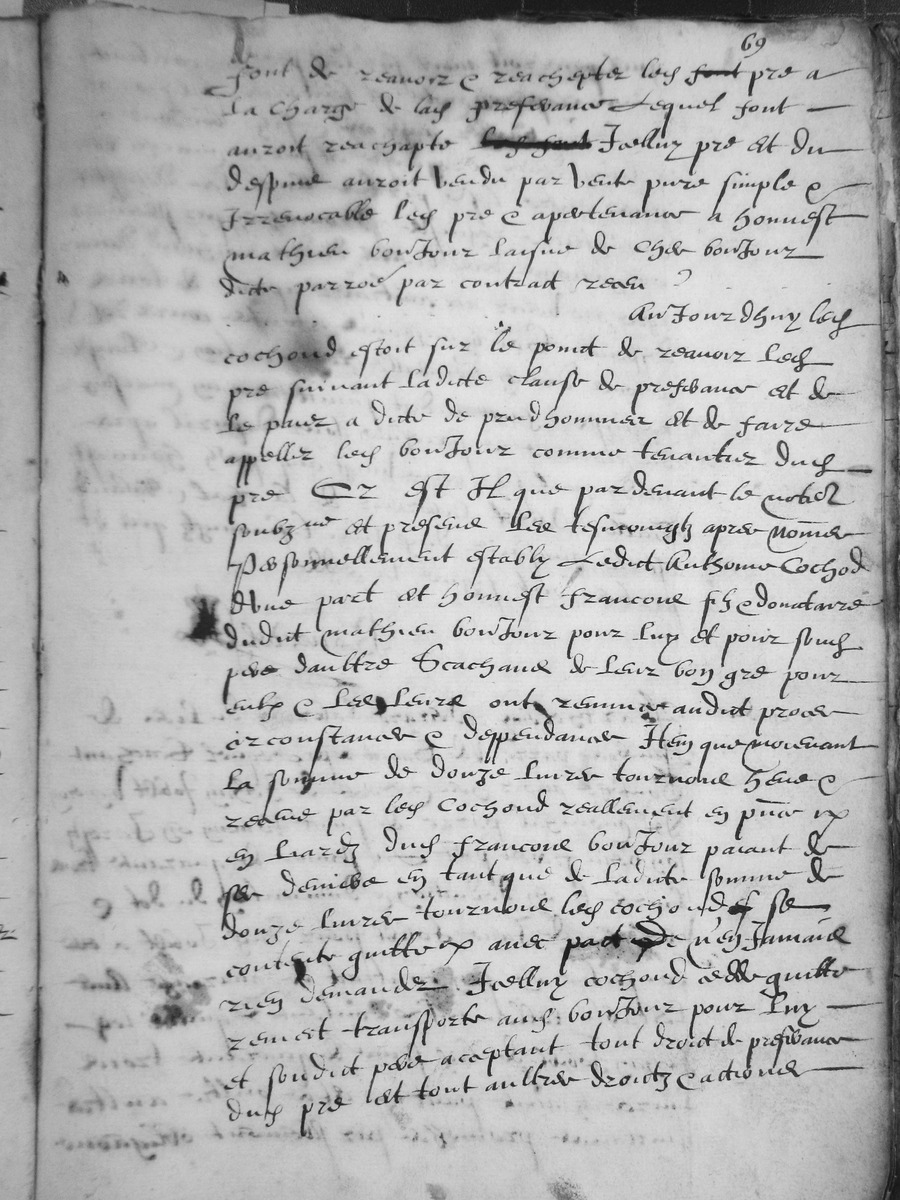 69
font de reavoir & reachepter led font pre a
la charge de lad preferance Lequel font
auroit reachapte Icelluy pre et du
despuis auroit vendu par vente pure simple &
Irrevocable led pre & apertenance a honnest
mathieu bonJour laisne de chez bonJour
dicte parroe par contract receu
AuJourdhuy led
cochond estoit sur le poinct de reavoir led
pre suivant ladicte clause de preferance et de
le paier a dicte de prudhommes et de faire
appeller led bonJour comme tenantier dud
pre Or est Il que par devant le notere
soubzne et presens les tesmoingtz apres nomes
Personnellement estably Ledict Anthoine Cochod
dune part et honnest francois filz & donataire
dudict mathieu bonJour pour luy et pour sond
pere daultre Scachans de leur bon gre pour
eulx & les leurs ont renunce audict proces
circonstances & deppendances Item que moienant
la somme de douze livres tournois heue &
receue par led Cochond reallement en pnce
en liardz dud francois bonJour paiant de
ses deniers en tant que de ladicte somme de
douze livres tournois led cochond se
contente quitte avec pact de nen Jamais
rien demander Icelluy cochond cedde quitte
remect transporte aud bonJour pour luy
et sondict pere aceptant tout droict de preferance
dud pre et tout aultres droictz & actions